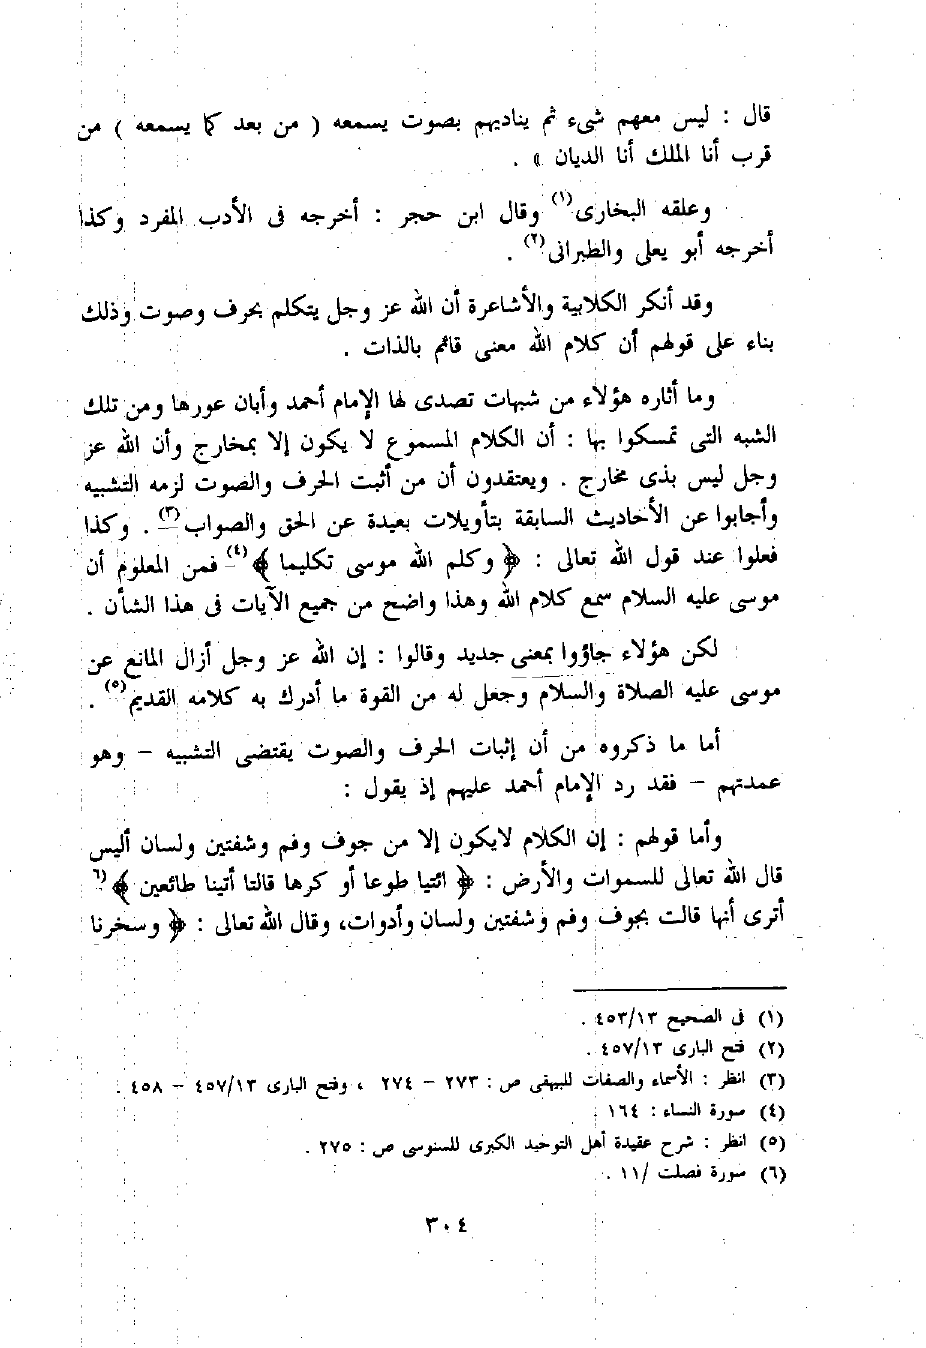 قال : ليس معهم شىء ثم يناديهم بصوت يسمعه ( من بعد كما يسمعه ) من
قرب أنا الملك أنا الديان » .
وعلقه البخارى(١) وقال ابن حجر : أخرجه فى الأدب المفرد وكذا
أخرجه أبو يعلى والطبرانى(٢) .
وقد أنكر الكلابية والأشاعرة أن الله عز وجل يتكلم بحرف وصوت وذلك
بناء على قولهم أن كلام الله معنى قائم بالذات .
وما أثاره هؤلاء من شبهات تصدى لها الإمام أحمد وأبان عورها ومن تلك
الشبه التى تمسكوا بها : أن الكلام المسموع لا يكون إلا بمخارج وأن الله عز
وجل ليس بذى مخارج . ويعتقدون أن من أثبت الحرف والصوت لزمه التشبيه
وأجابوا عن الأحاديث السابقة بتأويلات بعيدة عن الحق والصواب(٣) . وكذا
فعلوا عند قول الله تعالى : ﴿ وكلم الله موسى تكليما ﴾(٤) فمن المعلوم أن
موسى عليه السلام سمع كلام الله وهذا واضح من جميع الآيات فى هذا الشأن .
لكن هؤلاء جاؤوا بمعنى جديد وقالوا : إن الله عز وجل أزال المانع عن
موسى عليه الصلاة والسلام وجعل له من القوة ما أدرك به كلامه القديم(٥) .
أما ما ذكروه من أن إثبات الحرف والصوت يقتضى التشبيه – وهو
عمدتهم – فقد رد الإمام أحمد عليهم إذ يقول :
وأما قولهم : إن الكلام لايكون إلا من جوف وفم وشفتين ولسان أليس
قال الله تعالى للسموات والأرض : ﴿ ائتيا طوعا أو كرها قالتا أتينا طائعين ﴾(٦)
أترى أنها قالت بجوف وفم وشفتين ولسان وأدوات، وقال الله تعالى : ﴿ وسخرنا
(١) فى الصحيح ٤٥٣/١٣ .
(٢) فتح البارى ٤٥٧/١٣ .
(٣) انظر : الأسماء والصفات للبيهقى ص : ٢٧٣ – ٢٧٤ ، وفتح البارى ٤٥٧/١٣ – ٤٥٨ .
(٤) سورة النساء : ١٦٤ .
(٥) انظر : شرح عقيدة أهل التوحيد الكبرى للسنوسى ص : ٢٧٥ .
(٦) سورة فصلت /١١ .
٣٠٤